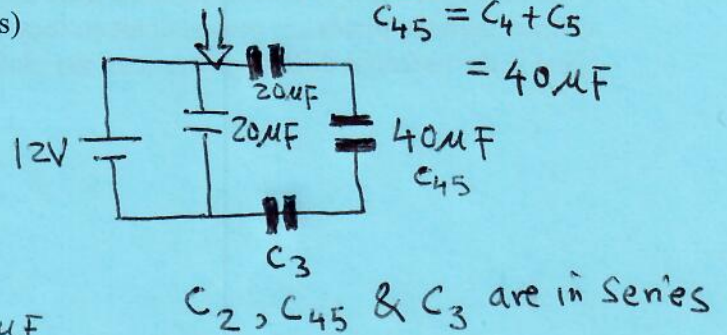 s)
C45 = C4 + C5
= 40 μF
20μF
12V
20μF
40μF
C45
C3
C2, C45 & C3 are in series
μF